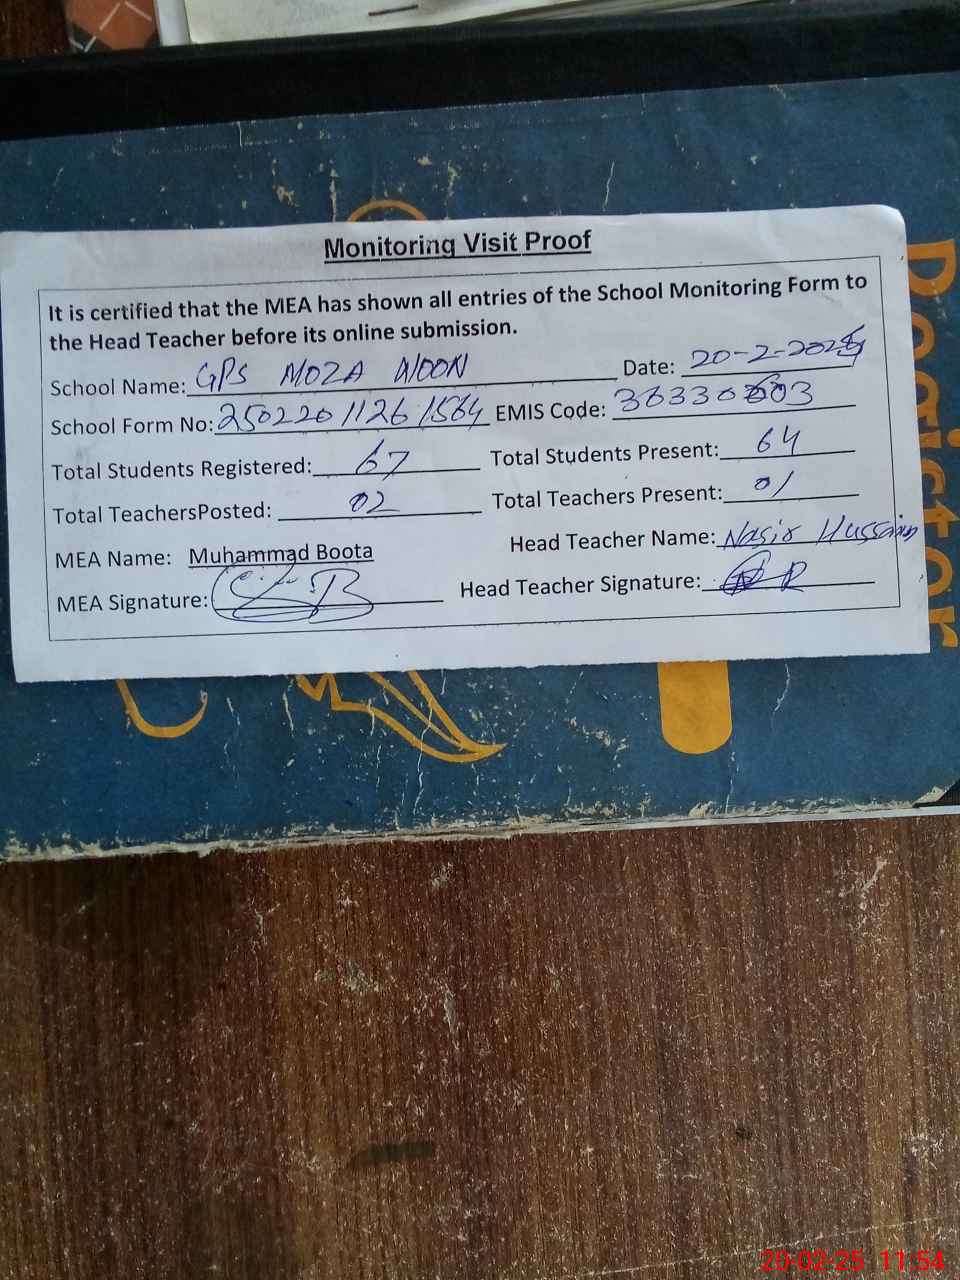 Monitoring Visit Proof
It is certified that the MEA has shown all entries of the School Monitoring Form to
the Head Teacher before its online submission.
School Name: GPS MOZA NOON Date: 20-2-2025
School Form No: 25022011261564 EMIS Code: 36330603
Total Students Registered: 67 Total Students Present: 64
Total TeachersPosted: 02 Total Teachers Present: 01
MEA Name: Muhammad Boota Head Teacher Name: Nasir Hussain
MEA Signature: Head Teacher Signature:
Register
20-02-25 11:54